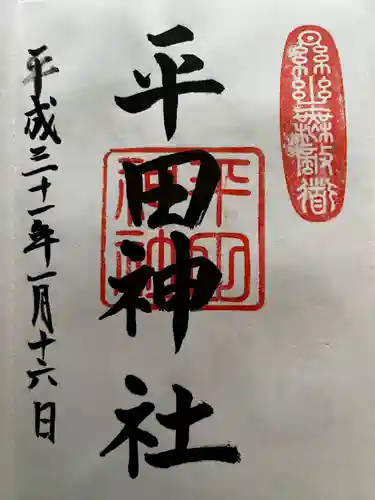 平田神社
平成三十一年一月十六日
平田
神社